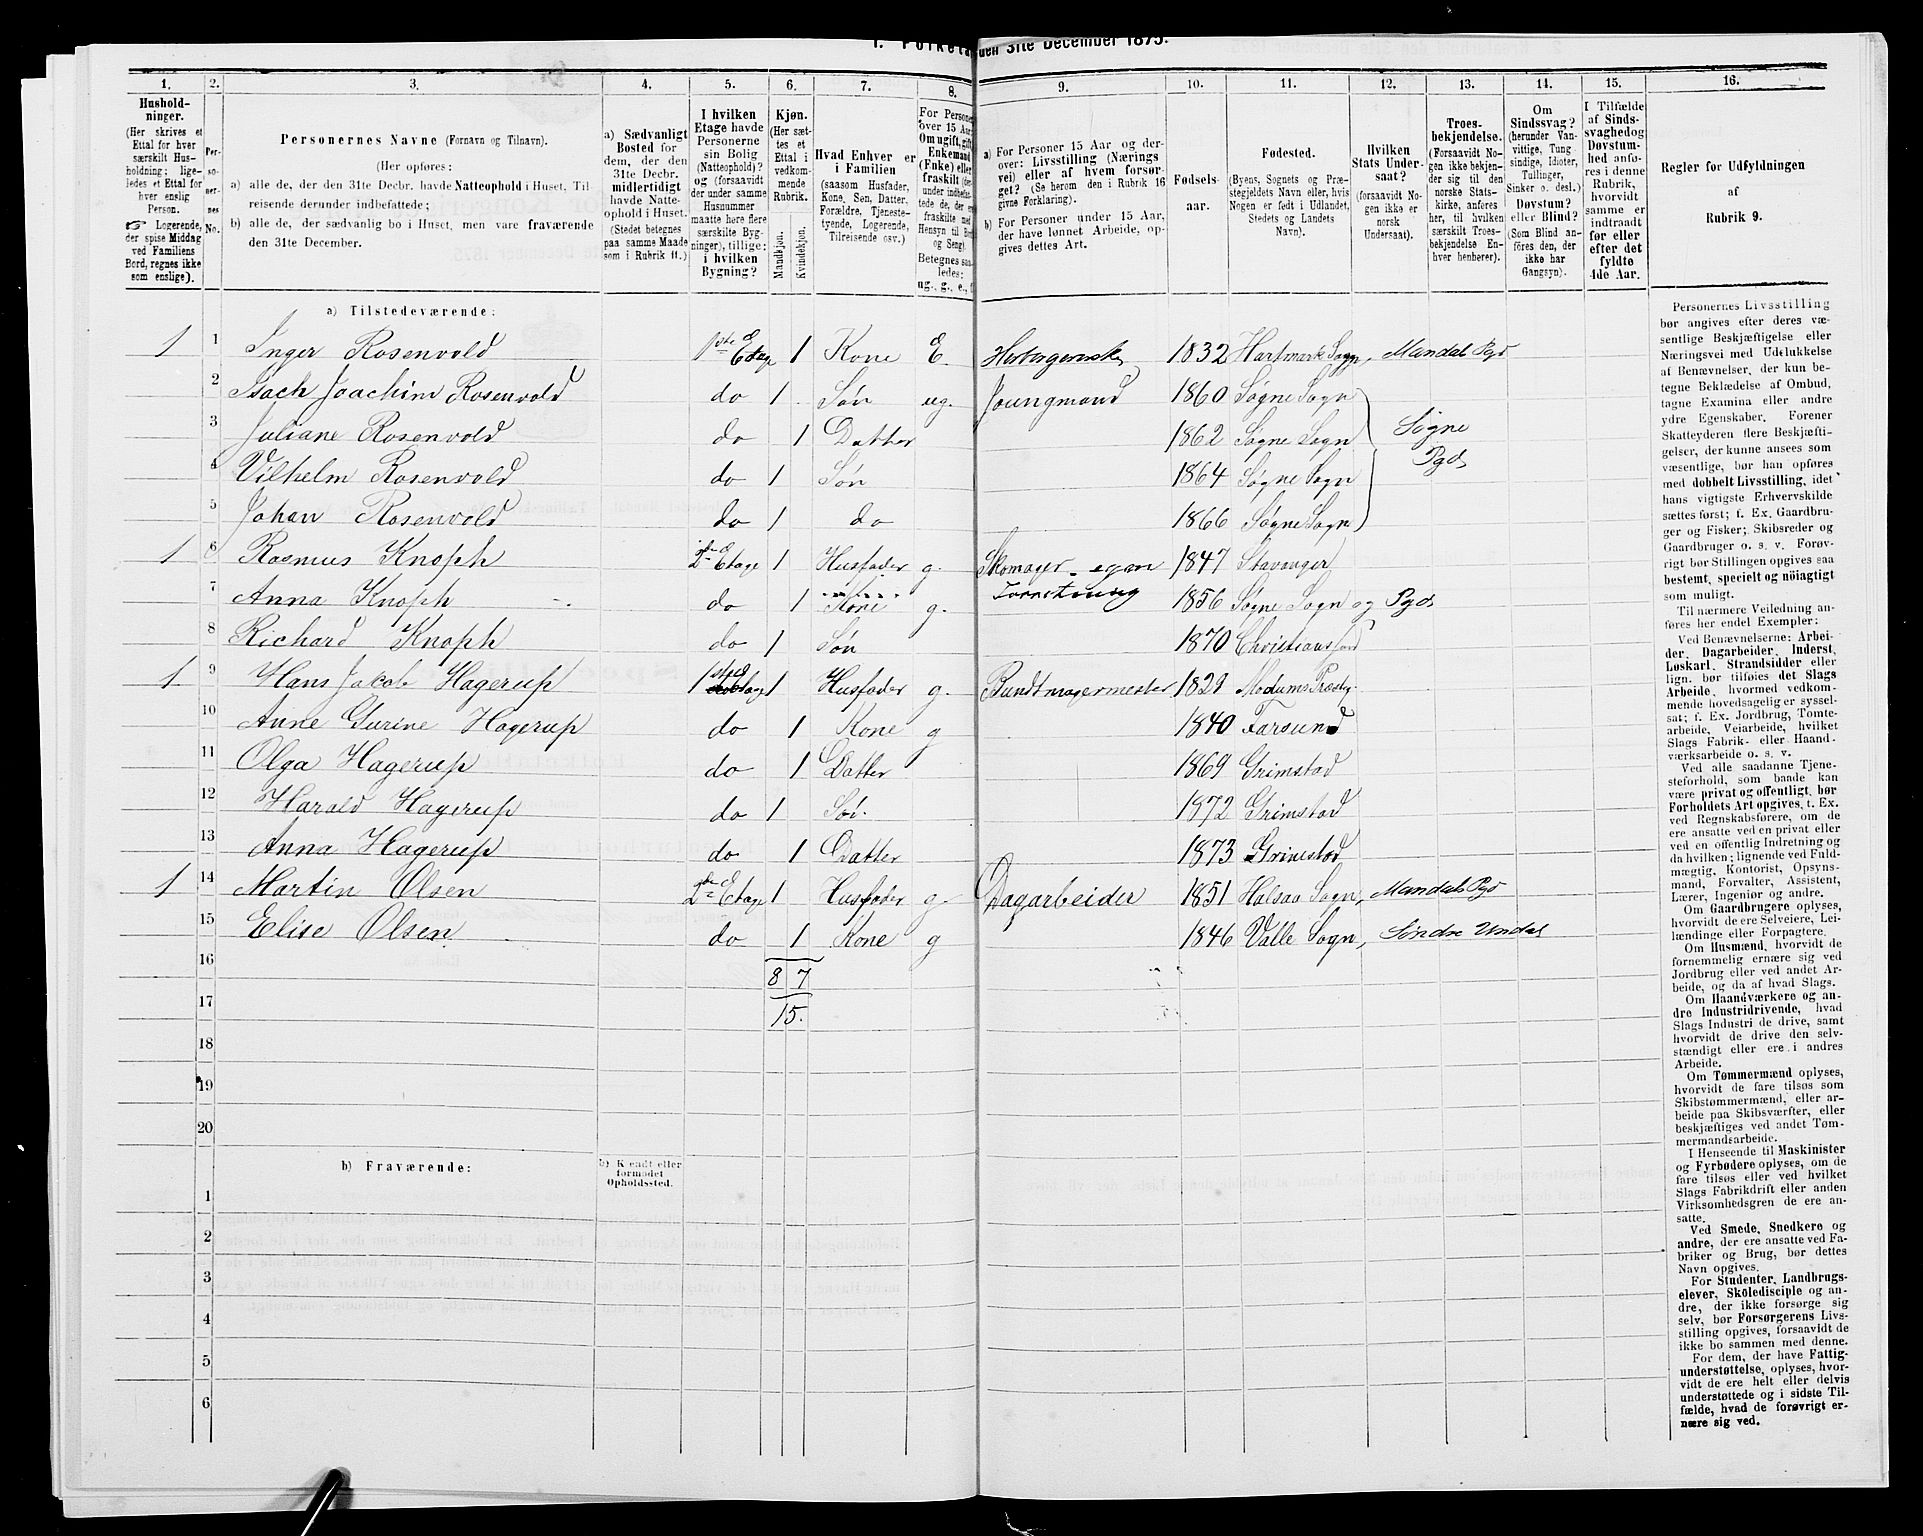 den 31te December 1875.
1. 2. 3. 4. 5. 6. 7. 8. 9. 10. 11. 12. 13. 14. 15. 16.
Hushold-
ninger.
(Her skrives et
Ettal for hver
særskilt Hus-
holdning; lige-
ledes et Ettal for
hver enslig
Person.
☞ Logerende,
der spise Middag
ved Familiens
Bord, regnes ikke
som enslige).
Per-
so-
ner-
nes
No.
Personernes Navne (Fornavn og Tilnavn).
(Her opføres:
a) alle de, der den 31te Decbr. havde Natteophold i Huset, Til-
reisende derunder indbefattede;
b) alle de, der sædvanlig bo i Huset, men vare fraværende
den 31te December.
a) Sædvanligt
Bosted for
dem, der den
31te Decbr.
midlertidigt
havde Natte-
ophold i Huset.
(Stedet betegnes
paa samme Maade
som i Rubrik 11.)
I hvilken
Etage havde
Personerne
sin Bolig
(Natteophold)?
og (forsaavidt
der under samme
Husnummer
maatte høre flere
særskilte Byg-
ninger), tillige:
i hvilken
Bygning?
Kjøn.
(Her sæt-
tes et
Ettal i
vedkom-
mende
Rubrik.
Mandkjøn.
Kvindekjøn.
Hvad Enhver er
i Familien
(saasom Husfader,
Kone, Søn, Datter,
Forældre, Tjeneste-
tyende, Logerende,
Tilreisende osv.)
For Personer
over 15 Aar:
Om ugift, gift,
Enkemand
(Enke) eller
fraskilt
Betegnes saa-
ledes:
ug., g., e.,
a) For Personer 15 Aar og der-
over: Livsstilling (Nærings
vei) eller af hvem forsør-
get? (Se herom den i Rubrik 16
givne Forklaring).
b) For Personer under 15 Aar,
der have lønnet Arbeide, op-
gives dettes Art.
Fødsels-
aar.
Fødested.
(Byens, Sognets og Præ-
stegjeldets Navn eller, hvis
Nogen er født i Udlandet,
Stedets og Landets
Navn).
Hvilken
Stats Under-
saat?
(forsaavidt No-
gen ikke er
norsk
Undersaat).
Troes-
bekjendelse.
(Forsaavidt No-
gen ikke bekjen-
der sig til den
norske Stats-
kirke, anføres
her, til hvilken
særskilt Troes-
bekjendelse En-
hver henhører).
Om
Sindssvag?
(herunder Van-
vittige, Tung-
sindige, Idioter,
Tullinger,
Sinker o. desl.)
Døvstum?
eller Blind?
(Som Blind an-
føres den, der
ikke har
Gangsyn).
I Tilfælde
af Sinds-
svaghed og
Døvstum-
hed anfø-
res i denne
Rubrik,
hvorvidt
samme er
indtraadt
før eller
efter det
fyldte
4de Aar.
Regler for Udfyldningen
af
Rubrik 9.
a) Tilstedeværende:
1 1 Inger Rosenvold 1ste Etage 1 Kone E. 1832 Hartmark Sogn, Mandal Pgd
2 Isach Joachim Rosenvold do 1 Søn ug. Joungmand 1860 Søgne Sogn
3 Juliane Rosenvold do 1 Datter 1862 Søgne Sogn Søgne
4 Vilhelm Rosenvold do 1 Søn 1864 Søgne Sogn Pgd
5 Johan Rosenvold do 1 do 1866 Søgne Sogn
1 6 Rasmus Knoph 2den Etage 1 Husfader g. Skomager egen 1847 Stavanger
7 Anna Knoph do 1 Kone g. Forretning 1856 Søgne Sogn og Pgd
8 Richard Knoph do 1 Søn 1870 Christianssand
1 9 Hans Jakob Hagerup 1ste Etage 1 Husfader g. Bundtmagermester 1828 Modums Præstg.
10 Anne Gurine Hagerup do 1 Kone g 1840 Farsund
11 Olga Hagerup do 1 Datter 1869 Grimstad
12 Harald Hagerup do 1 Søn 1872 Grimstad
13 Anna Hagerup do 1 Datter 1873 Grimstad
1 14 Martin Olsen 2den Etage 1 Husfader g. Dagarbeider 1851 Halsaa Sogn, Mandals Pgd
15 Elise Olsen do 1 Kone g 1846 Valle Sogn, Søndre Undal
16 8 7
17 15.
18
19
20
b) Fraværende:
b) Kjendt eller
formodet
Opholdssted.
1
2
3
4
5
6
Personernes Livsstilling
bør angives efter deres væ-
sentlige Beskjæftigelse eller
Næringsvei med Udelukkelse
af Benævnelser, der kun be-
tegne Beklædelse af Ombud,
tagne Examina eller andre
ydre Egenskaber. Forener
Skatteyderen flere Beskjæfti-
gelser, der kunne ansees som
væsentlige, bør han opføres
med dobbelt Livsstilling, idet
hans vigtigste Erhvervskilde
sættes først; f. Ex. Gaardbru-
ger og Fisker; Skibsreder og
Gaardbruger o. s. v. Forøv-
rigt bør Stillingen opgives saa
bestemt, specielt og nøiagtigt
som muligt.
Til nærmere Veiledning an-
føres her endel Exempler:
Ved Benævnelserne: Arbei-
der, Dagarbeider, Inderst,
Løskarl, Strandsidder eller
lign. bør tilføies det Slags
Arbeide, hvormed vedkom-
mende hovedsagelig er syssel-
sat; f. Ex. Jordbrug, Tomte-
arbeide, Veiarbeide, hvilket
Slags Fabrik- eller Haand-
værksarbeide o. s. v.
Ved alle saadanne Tjene-
steforhold, som baade kan
være privat og offentligt, bør
Forholdets Art opgives, t. Ex.
ved Regnskabsførere, om de
ere ansatte ved en privat eller
ved en offentlig Indretning og
da hvilken; lignende ved Fuld-
mægtig, Kontorist, Opsyns-
mand, Forvalter, Assistent,
Lærer, Ingeniør og andre.
Om Gaardbrugere oplyses,
hvorvidt de ere Selveiere, Lei-
lændinge eller Forpagtere.
Om Husmænd, hvorvidt de
fornemmelig ernære sig ved
Jordbrug eller ved andet Ar-
beide, og da af hvad Slags.
Om Haandværkere og an-
dre Industridrivende, hvad
Slags Industri de drive, samt
hvorvidt de drive den selv-
stændigt eller ere i andres
Arbeide.
Om Tømmermænd oplyses,
hvorvidt de fare tilsøs som
Skibstømmermænd, eller ar-
beide paa Skibsværfter, eller
beskjæftiges ved andet Tøm-
mermandsarbeide.
I Henseende til Maskinister
og Fyrbødere oplyses, om de
fare tilsøs eller ved hvilket
Slags Fabrikdrift eller anden
Virksomhedsgren de ere an-
satte.
Ved Smede, Snedkere og
andre, der ere ansatte ved Fa-
briker og Brug, bør dettes
Navn opgives.
For Studenter, Landbrugs-
elever, Skoledisciple og an-
dre, der ikke forsørge sig
selv, bør Forsørgerens Livs-
stilling opgives, forsaavidt de
ikke bo sammen med denne.
For dem, der have Fattig-
understøttelse, oplyses, hvor-
vidt de ere helt eller delvis
understøttede og i sidste Til-
fælde, hvad de forøvrigt er-
nære sig ved.